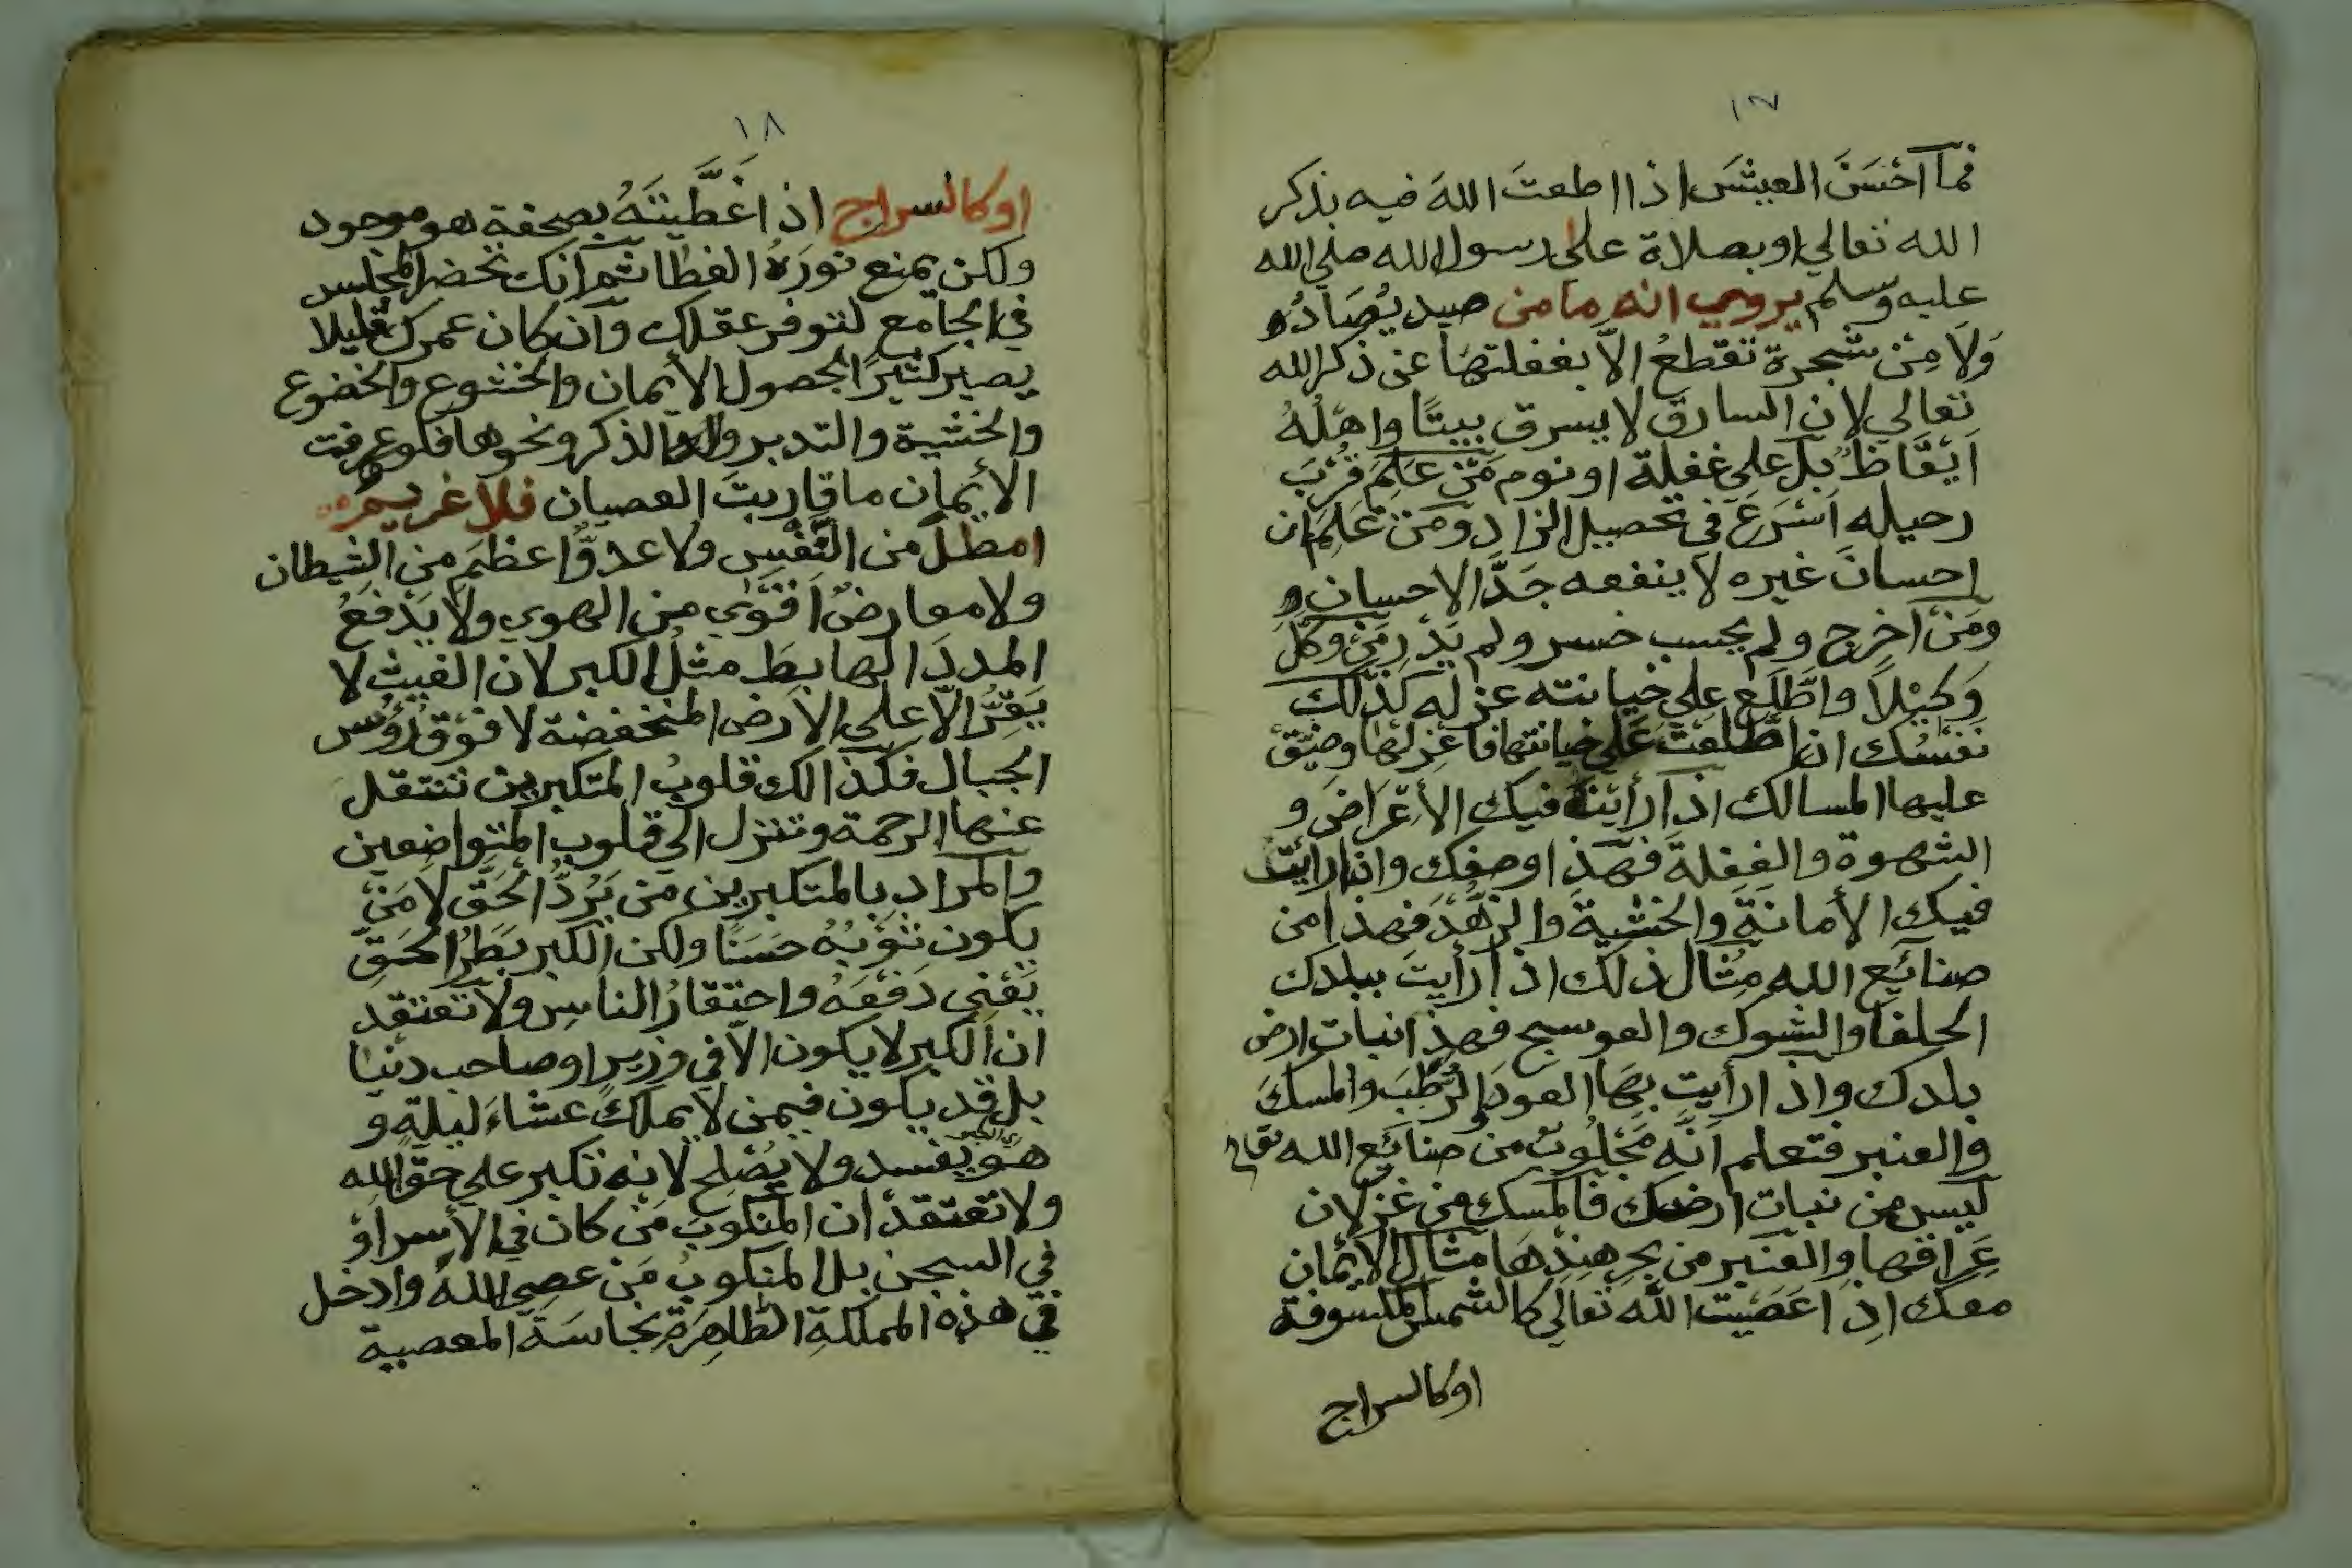 ١٧
فمَا آحْسَنَ العيشَ اذا اطعتَ اللهَ فيه بذكر
الله تعالي او بصلاة على رسول الله صلي الله
عليه وسلم يروي انه ما من صيد يُصَادُ
وَلاَ مِنْ شجرة تقطعُ الاَّ بغفلتهَا عن ذكر الله
تعالي لان السارق لا يسرق بيتًا واهْلُهُ
اَيْقَاظُ بل على غفلة او نوم مَنْ عَلِمَ قُرْبَ
رحيله اَسْرَعَ في تحصيل الزاد ومَنْ عَلِمَ ان
احسانَ غيره لا ينفعه جَدَّ الاحسان
ومَنْ اخرج ولم يحسب خسر ولم يَدْرِ مَنْ وكلَ
وَكيْلاً واطَّلَع على خيانته عزله كذلك
نفسُك ان اطَّلَعْتَ عَلى خيانتها فاعْزِلهَا وضيّق
عليها المسالك اذا رأيتَ فيك الأغْرَاضَ و
الشهوة والغفلةَ فهَذا وصفك واذا رأيت
فيك الأمانَةَ والخشيةَ والزهْدَ فهذا من
صنائع الله مِثَال ذلك اذا رأيتَ ببلدك
الحلفا والشوك والعوسج فهذا نبات ارض
بلدك واذا رأيت بِهَا العودَ الرَّطْبَ والمسكَ
والعنبر فتعلم اَنَّه مَجْلُوبٌ من صنائع الله تعالي
ليس من نبات ارضك فالمسك من غزلان
عِرَاقها والعنبر من بحر هِنْدِهَا مثال الايْمان
معك اذا عَصَيْت اللَّه تعالي كالشمس المكسوفة
اوكالسراج
١٨
اوكالسراج اذا غَطَّيْتَهُ بصحفة هو موجود
ولكن يمنع نورَهُ الغطا ثم اَنك تحضر المجلس
في الجامع لتوفر عقلك وان كان عمرك قليلا
يصير كثيرًا لحصول الأيمان والخشوع والخضوع
والخشية والتدبر والذكر ونحوها فلو عرفت
الأيمان ما قاربت العصيان فلا غريم
امطل من النَّفْسِ ولا عدوًّ اعظمَ من الشيطان
ولا معارضٌ اَقْوَي من الهوي ولا يَدْفعُ
المددَ الهابِطَ مثلُ الكبر لان الغيث لا
يَقِرُّ الاّ على الارض المنخفضة لا فوْق رُؤُس
الجبال فكذالك قلوبُ المتكبرين تنتقل
عنها الرحمة وتنزل الي قلوب المتواضعين
والمراد بالمتكبرين مَن يَرُدُّ الحَقَّ لا مَن
يكون ثوْبُهُ حسَنًا ولكن الكبر بَطَرُ الحَقِّ
يَعْنِي دَفْعَهُ واحتقارُ الناس ولا تعتقد
ان الكبر لا يكون الاّ في وزير او صاحب دنيا
بل قد يكون فيمن لا يملك عشاءَ ليلةٍ و
هو يفسد ولا يُصْلح لانه تكبر على حق الله
ولا تعتقدْ ان المنكوبَ مَن كان في الأسر اوْ
في السجن بل المنكوبُ مَن عصي اللهَ وادخل
في هذه المملكةِ الطَّاهِرَةِ نجاسَةَ المعصية